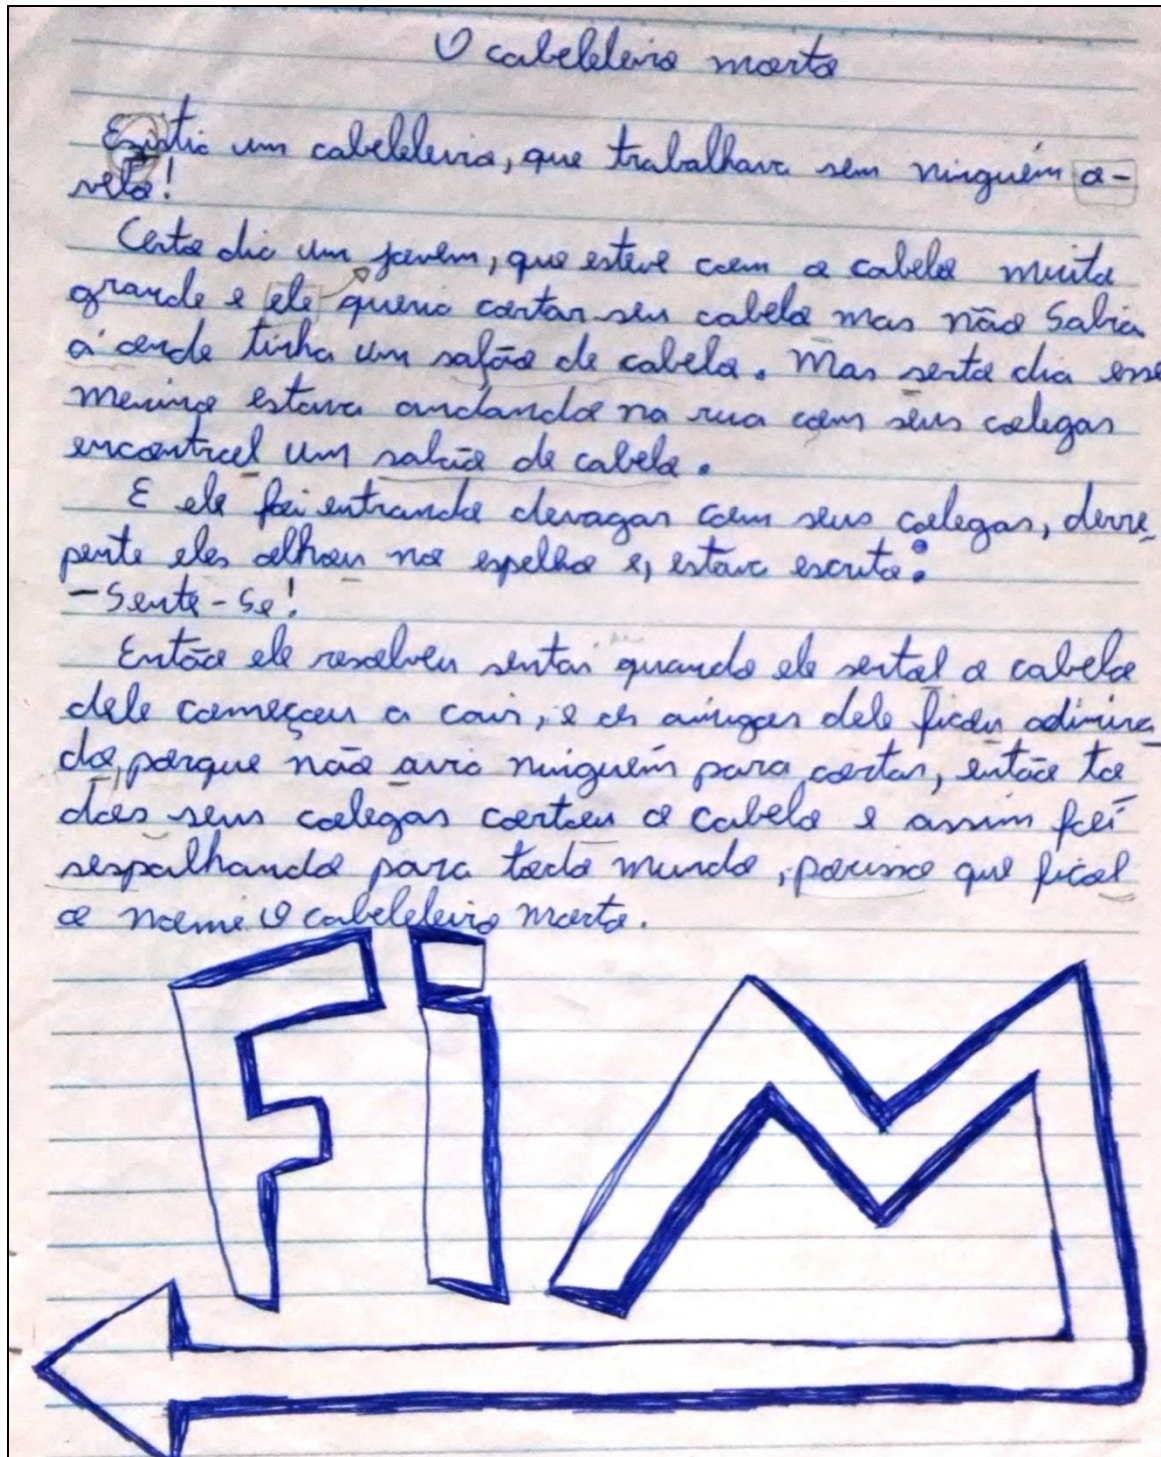 O cabeleleiro morto
Existia um cabeleleiro, que trabalhava sem ninguém o-
velo!
Certo dia um jovem, que esteve com o cabelo muito
grande e ele queria cortar seu cabelo mas não Sabia
a'onde tinha um salão de cabelo. Mas serto dia esse
menino estava andando na rua com seus colegas
encontrol um salão de cabelo.
E ele foi entrando devagar com seus colegas, derre
pente eles olhou no espelho e, estava escrito:
- Sente-Se!
Então ele resolveu sentar quando ele sental o cabelo
dele começou a cair, e os amigos dele ficou adimira
do, porque não avia ninguém para cortar, então to
dos seus colegas cortou o cabelo e assim foi
sespalhando para todo mundo, porisso que ficol
o nome O cabeleleiro morto.
FiM